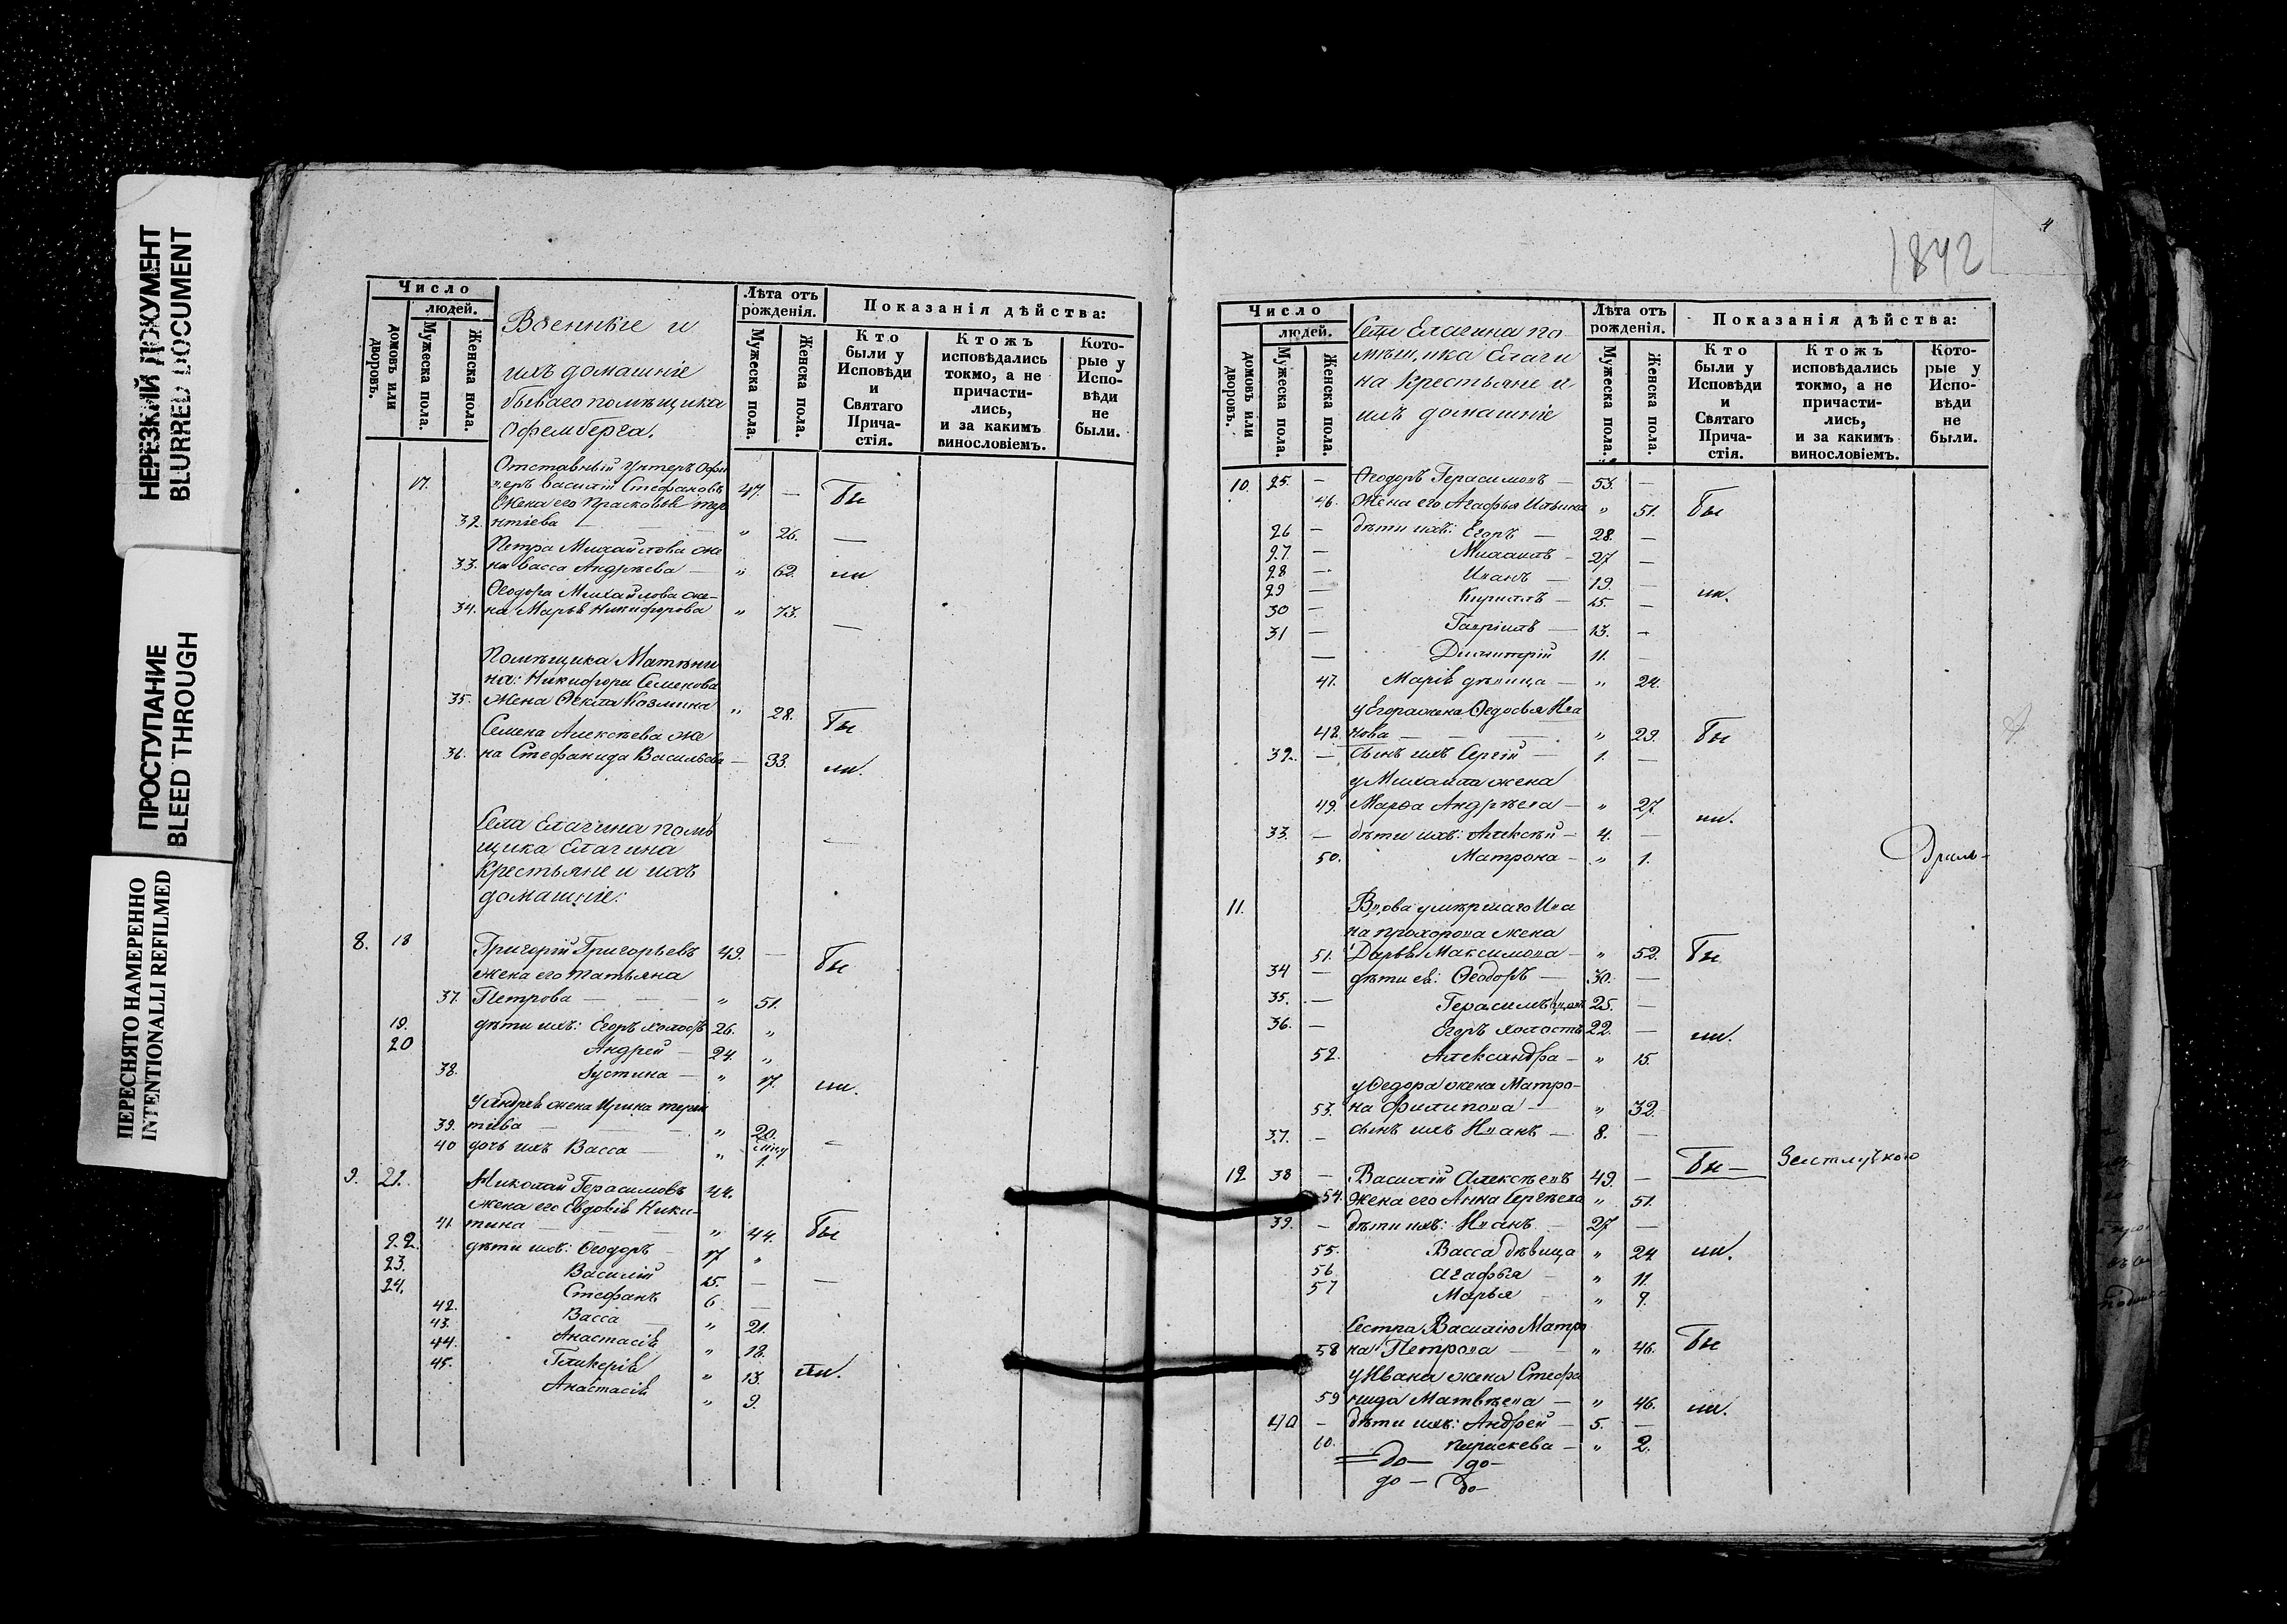 НЕРЕЗКИЙ ДОКУМЕНТ
BLURRED DOCUMENT
ПРОСТУПАНИЕ
BLEED THROUGH
ПЕРЕСНЯТО НАМЕРЕННО
INTENTIONALLI REFILMED
Число
людей.
домовъ или дворовъ.
Мужеска пола.
Женска пола.
Военные и
ихъ домашніе
бываго помѣщика
Офемберга.
Лѣта отъ рожденія.
Мужеска пола.
Женска пола.
Показанія дѣйства:
Кто были у Исповѣди и Святаго Прича-стія.
Ктожъ исповѣдались токмо, а не причасти-лись, и за какимъ винословіемъ.
Кото-рые у Испо-вѣди не были.
Отставный Унтеръ Офи
17. церъ Василій Стефановъ 47. — бы
Жена его Прасковья Тере
32. нтіева — " 26. —
Петра Михайлова же
33. на Васса Андрѣева — " 62. ли
Ѳеодора Михайлова же-
34. на Марья Никифорова " 73. —
Помѣщика Матюни
на: Никифора Семенова
35. жена Ѳекла Козмина " 28. бы
Семена Алексѣева же
36. на Стефанида Васильева — 33. ли.
Села Елагина помѣ
щика Елагина
крестьяне и ихъ
домашніе:
8. 18 Григорій Григорьевъ 49. — бы
жена его Татьяна
37. Петрова — — — " 51.
19. дѣти ихъ: Егоръ холостъ 26. "
20 Андрей — 24. "
38. Іустина — " 17. ли.
У Андрея жена Ирина Терен
39. тіева — " 20.
40 дочь ихъ Васса — " 1. —
9. 21. Николай Герасимовъ 44.
жена его Евдокія Ники-
41. тина — " 44. бы
22. дѣти ихъ: Ѳеодоръ 17 "
23. Василій 15. — —
24. Стефанъ 6. —
42. Васса — " 21.
43. Анастасія " 18.
44. Гликерія " 13. ли.
45. Анастасія " 9.
1842
4
Число
людей.
домовъ или дворовъ.
Мужеска пола.
Женска пола.
Села Елагина по-
мѣщика Елаги
на Крестьяне и
ихъ домашніе
Лѣта отъ рожденія.
Мужеска пола.
Женска пола.
Показанія дѣйства:
Кто были у Исповѣди и Святаго Прича-стія.
Ктожъ исповѣдались токмо, а не причасти-лись, и за какимъ винословіемъ.
Кото-рые у Испо-вѣди не были.
10. 25. — Ѳеодоръ Герасимовъ — 53. —
46. Жена его Агафья Ильина " 51. бы
26 — дѣти ихъ: Егоръ — 28. —
27 — Михаилъ — 27 —
28 — Иванъ — 19. —
29 — Кириллъ — 15. — ли.
30 — Гавріилъ — 13. —
31 — Димитрій 11. —
47. Марія дѣвица — " 24.
у Егора жена Ѳедосья Ива
48. нова — — — " 29. бы
32. — сынъ ихъ Сергій — 1. —
у Михаила жена
49. Марѳа Андрѣева — " 27.
ли.
33. — дѣти ихъ: Алексѣй — 4. —
50. Матрона — " 1.
11. Вдова умершаго Ива
на Прохорова жена
51. Дарья Максимова — " 52. бы
34 — дѣти ея: Ѳеодоръ — 30. —
35. — Герасимъ 25. —
36. — Егоръ холостъ 22. — ли.
52. Александра — " 15.
у Ѳедора жена Матро-
53. на Филипова — " 32.
37. — сынъ ихъ Иванъ — 8. —
12 38 — Василій Алексѣевъ 49. — бы —
54. Жена его Анна Сергѣева " 51.
39. — дѣти ихъ: Иванъ — 27 —
55. Васса дѣвица " 24 ли.
56. Агафья " 11.
57 Марья "
Сестра Василію Матро
58 на Петрова — " 46. бы
у Ивана жена Стефа
59 нида Матвѣева — " 46. ли.
40 — дѣти ихъ: Андрей — 5. —
60. Параскева — " 2.
до — до —
до — до —